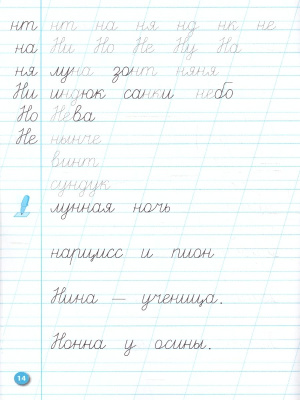 нт нт на ня нд нк не
на Ни Но Не Ну На
ня луна зонт няня
Ни индюк санки небо
Но Нева
Не нынче
винт
сундук
лунная ночь
нарцисс и пион
Нина — ученица.
Нонна у осины.
14